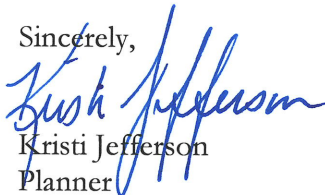 Sincerely,
Kristi Jefferson
Kristi Jefferson
Planner